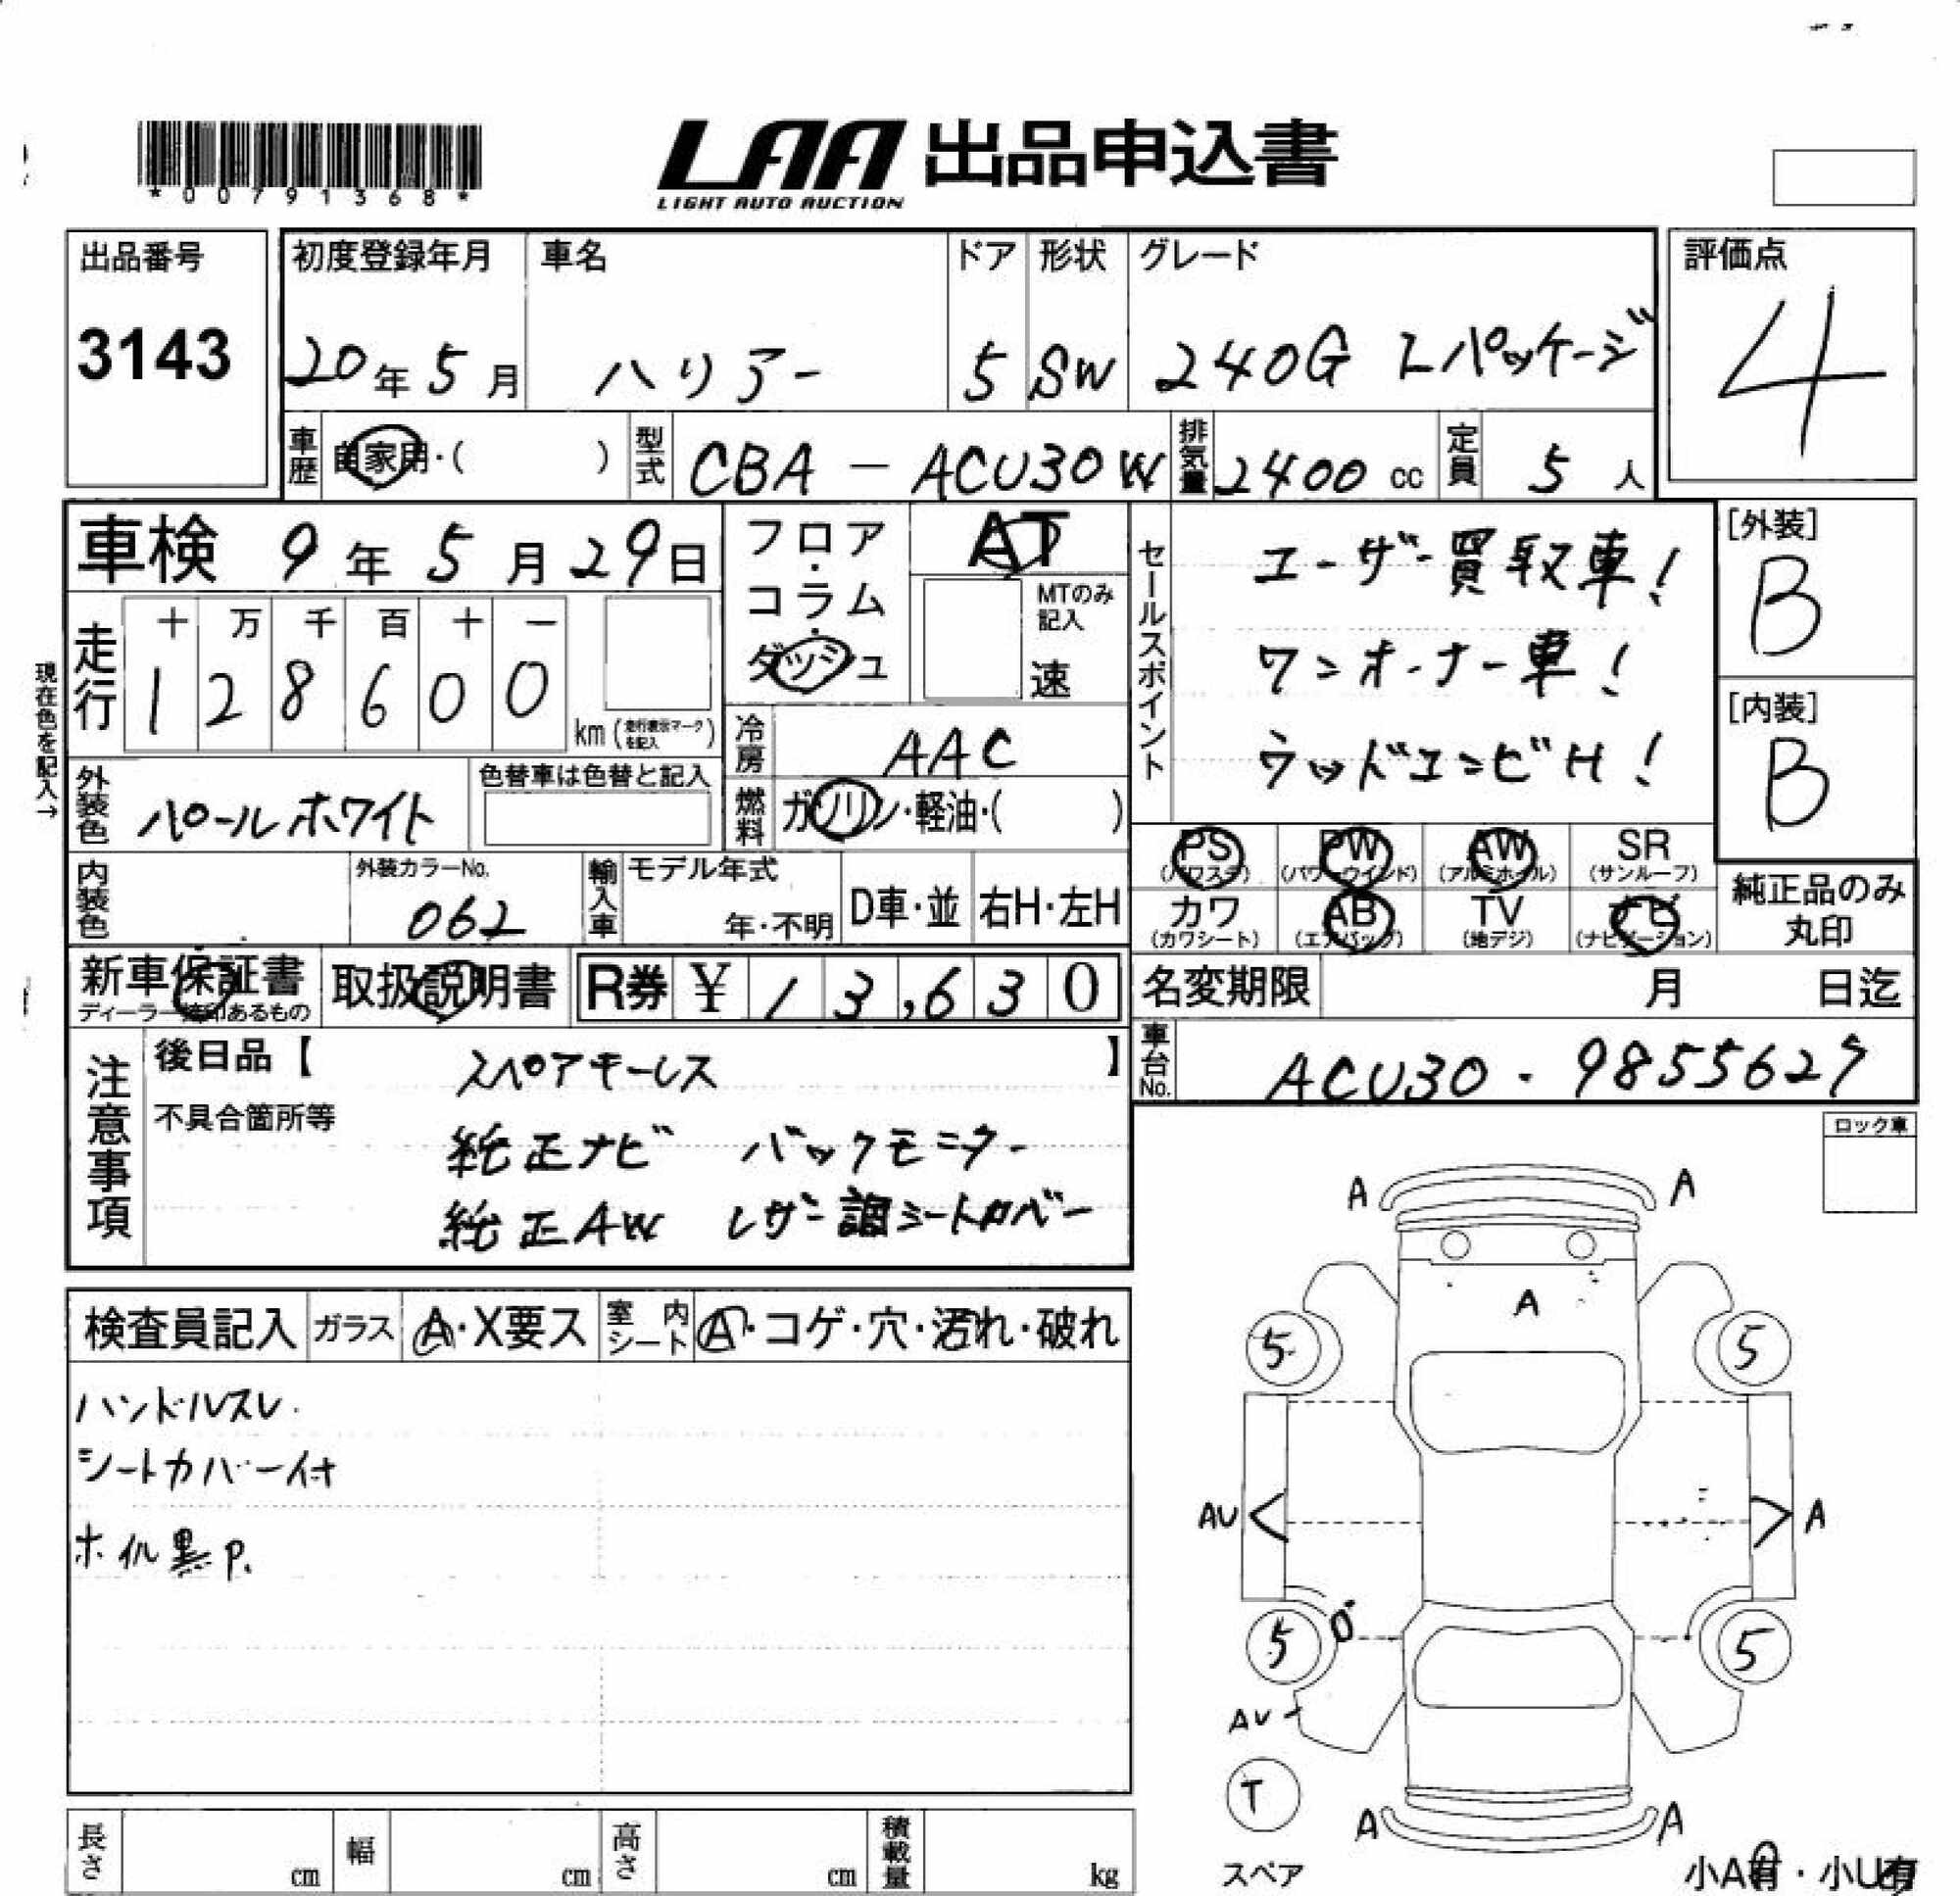 *00791368*
LAA 出品申込書
LIGHT AUTO AUCTION
出品番号
3143
初度登録年月
20年5月
車名
ハリアー
ドア
5
形状
SW
グレード
240G Lパッケージ
評価点
4
車歴 自家用・( )
型式 CBA-ACU30W
排気量 2400cc
定員 5人
車検 9年5月29日
現在色を記入→
走行
十 万 千 百 十 一
1 2 8 6 0 0
km(走行表示マークを記入)
フロア・
コラム・
ダッシュ
AT
MTのみ記入
速
冷房 AAC
燃料 ガソリン・軽油・( )
セールスポイント
ユーザー買取車!
ワンオーナー車!
ウッドコンビH!
[外装]
B
[内装]
B
外装色 パールホワイト
色替車は色替と記入
内装色
外装カラーNo.
062
輸入車
モデル年式
年・不明
D車・並
右H・左H
PS (パワステ)
PW (パワーウインド)
AW (アルミホイル)
SR (サンルーフ)
カワ (カワシート)
AB (エアバッグ)
TV (地デジ)
ナビ (ナビゲーション)
純正品のみ
丸印
新車保証書
取扱説明書
R券 ¥13,630
名変期限 月 日迄
車台No. ACU30-9855627
注意事項
後日品【 スペアキーレス 】
不具合箇所等
純正ナビ バックモニター
純正AW レザー調シートカバー
ロック車
検査員記入
ガラス A・X要ス
室内シート A・コゲ・穴・汚れ・破れ
ハンドルスレ.
シートカバー付
ホイル黒P.
A A
A
5 5
AU A
5 5
AU
T
スペア
A A
小A有・小U有
長さ cm
幅 cm
高さ cm
積載量 kg